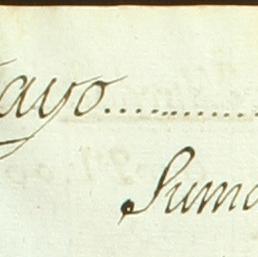 ayo..............
Suma